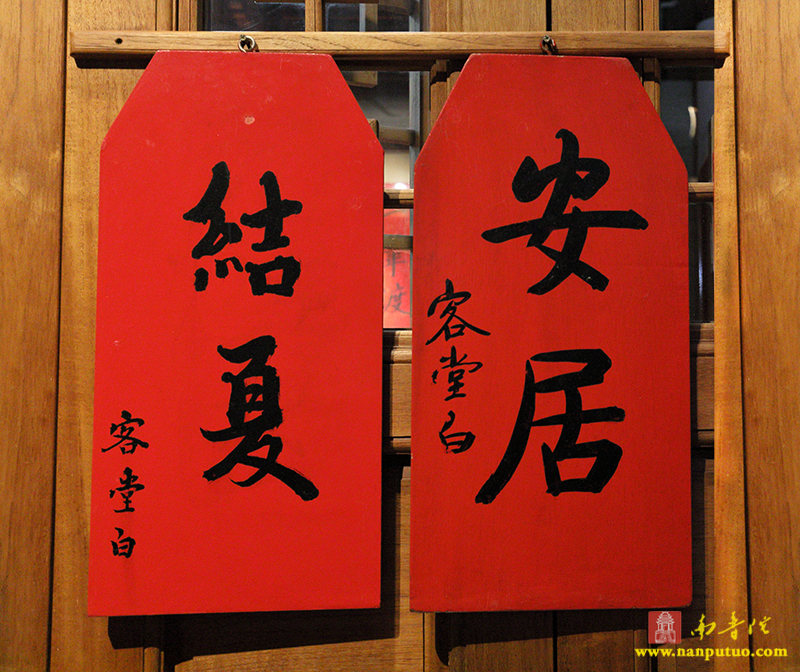 安居
客堂白
結夏
客堂白
年度
南普陀
www.nanputuo.com